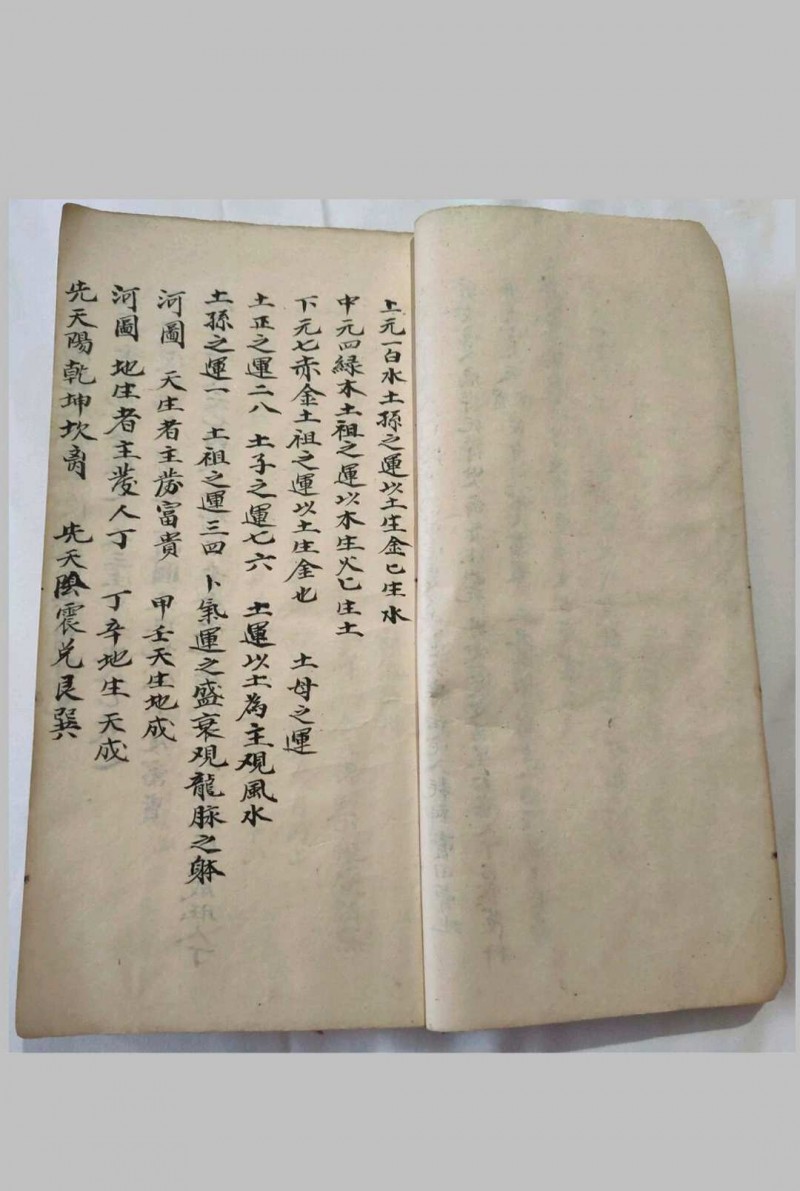 上元一白水土孫之運以土生金匕生水
中元四緑木土祖之運以木生火匕生土
下元七赤金土祖之運以土生金也 土母之運
土正之運二八 土子之運七六 土運以土為主观風水
土孫之運一 土祖之運三四 卜氣運之盛衰观龍脉之躰
河圖 天生者主發富貴 甲壬天生地成
河圖 地生者主發人丁 丁辛地生天成
先天陽乾坤坎离 先天陰震兌艮巽